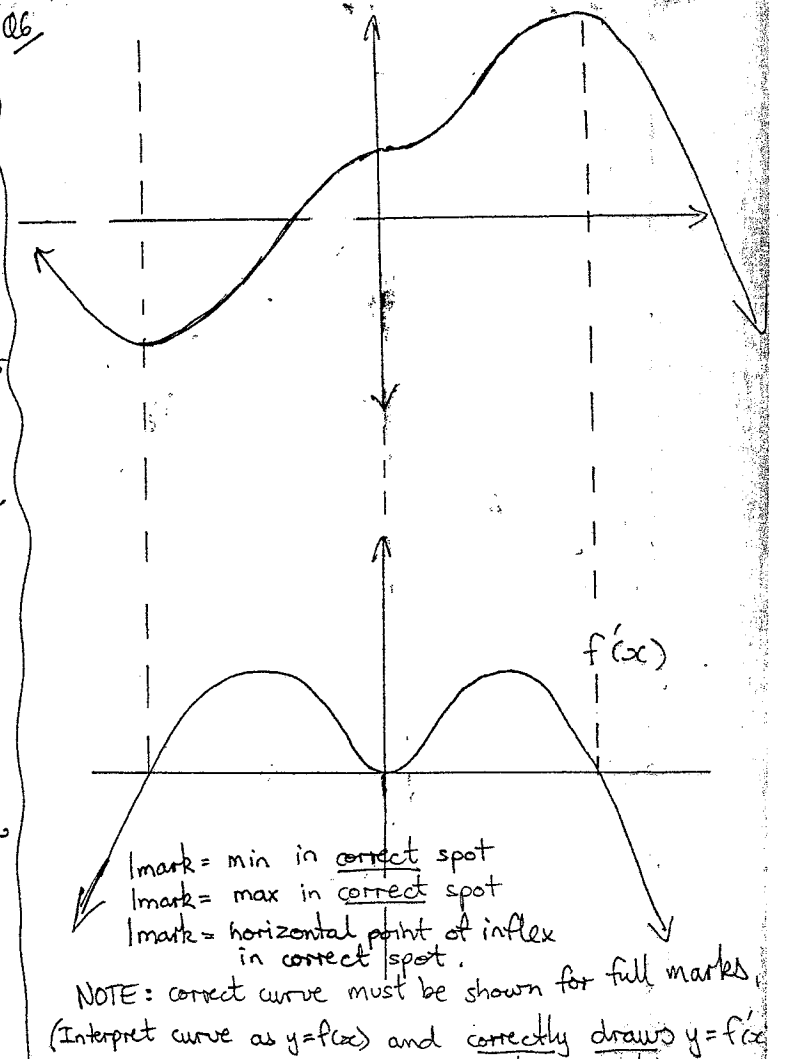 Q6
f'(x)
1mark = min in correct spot
1mark = max in correct spot
1mark = horizontal point of inflex
in correct spot.
NOTE: correct curve must be shown for full marks.
(Interpret curve as y=f(x) and correctly draws y=f'(x